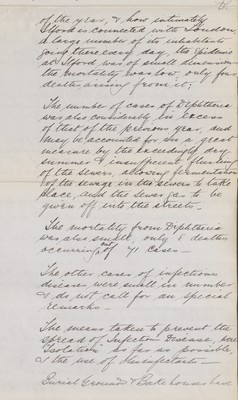 of the year, & how intimately
Ilford is connected with London,
a large number of its inhabitants
going there every day, the Epidemic
at Ilford was of small dimensions
the mortality was low, only four
deaths arising from it;
The number of cases of Diphtheria
was also considerably in excess
of that of the previous year, and
may be accounted for in a great
measure by the exceedingly dry
summer & insufficient flushing
of the sewers, allowing fermentation
of the sewage in the sewers to take
place, and the sewer gas to be
given off into the streets.
The mortality from Diphtheria
was also small, only 8 deaths
occurring out of 71 cases -
The other cases of infectious
diseases were small in number
& do not call for any special
remarks -
The means taken to prevent the
spread of Infectious Disease, were
Isolation as far as possible,
& the use of Disinfectants -
Burial Grounds & Bakehouses had